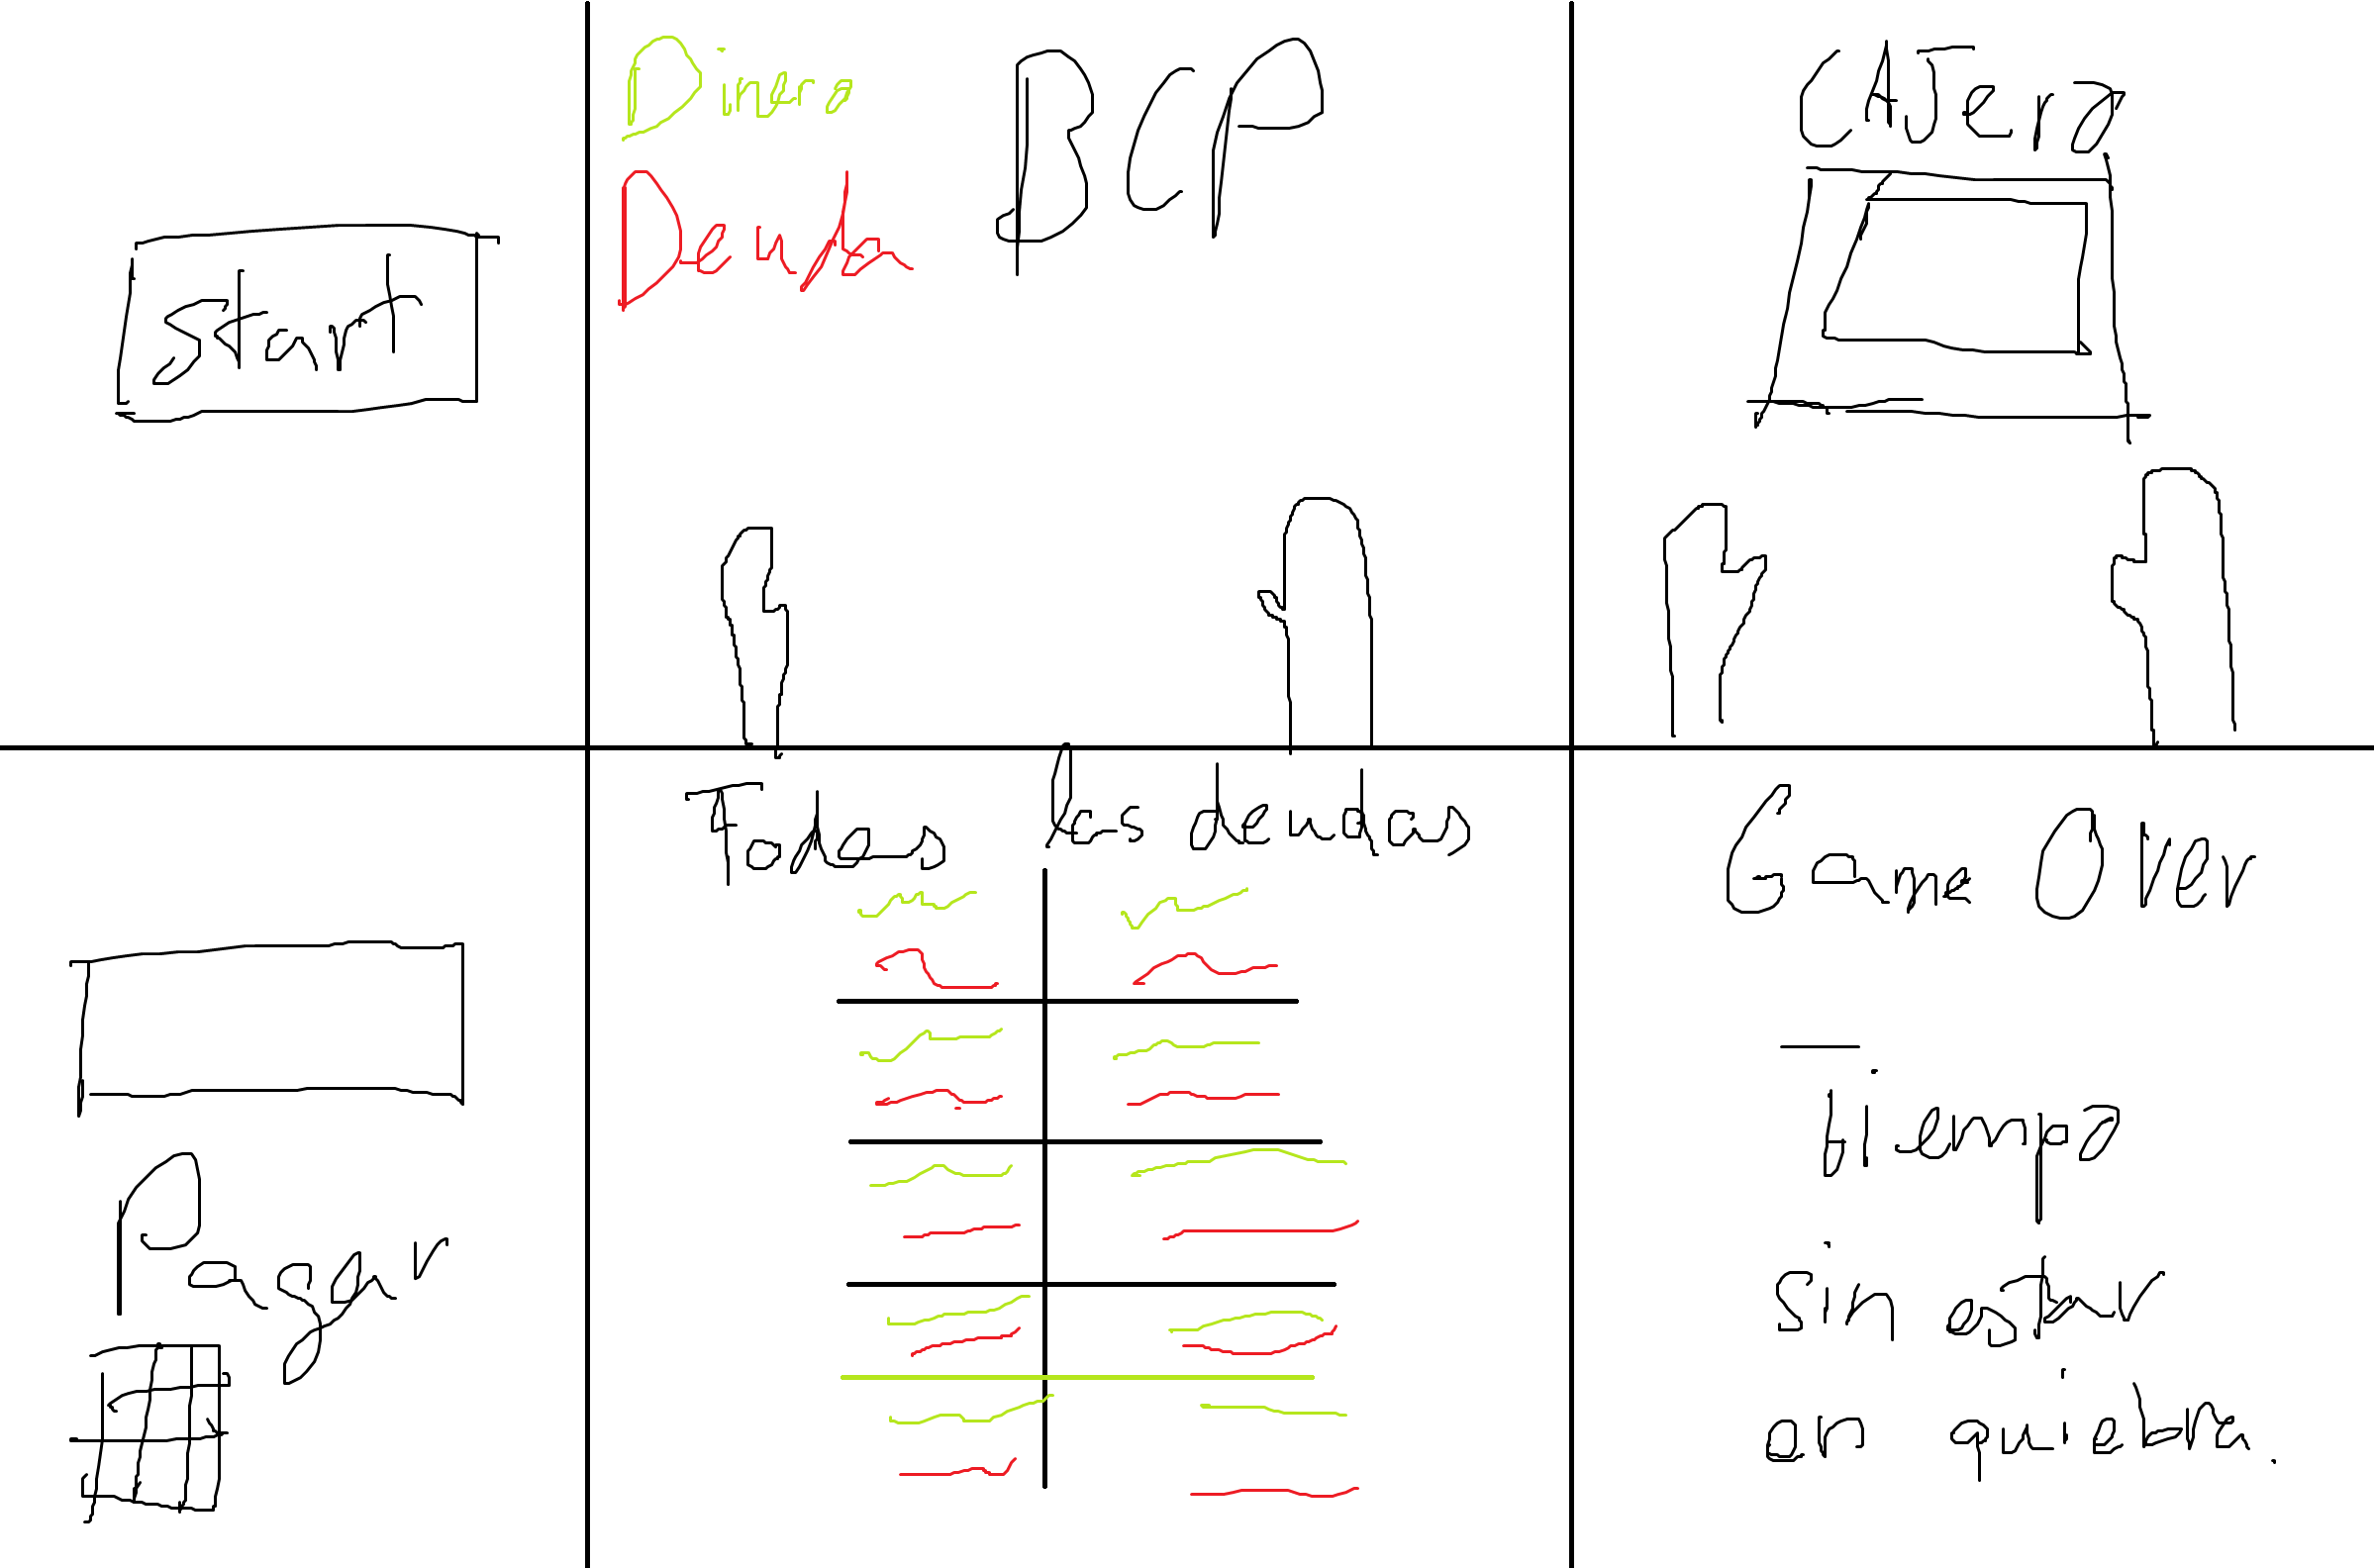 Start
Dinero
Deuda
BCP
CAJero
Pagar
Todas las deudas
Game Over
Tiempo
sin estar
en quiebra.